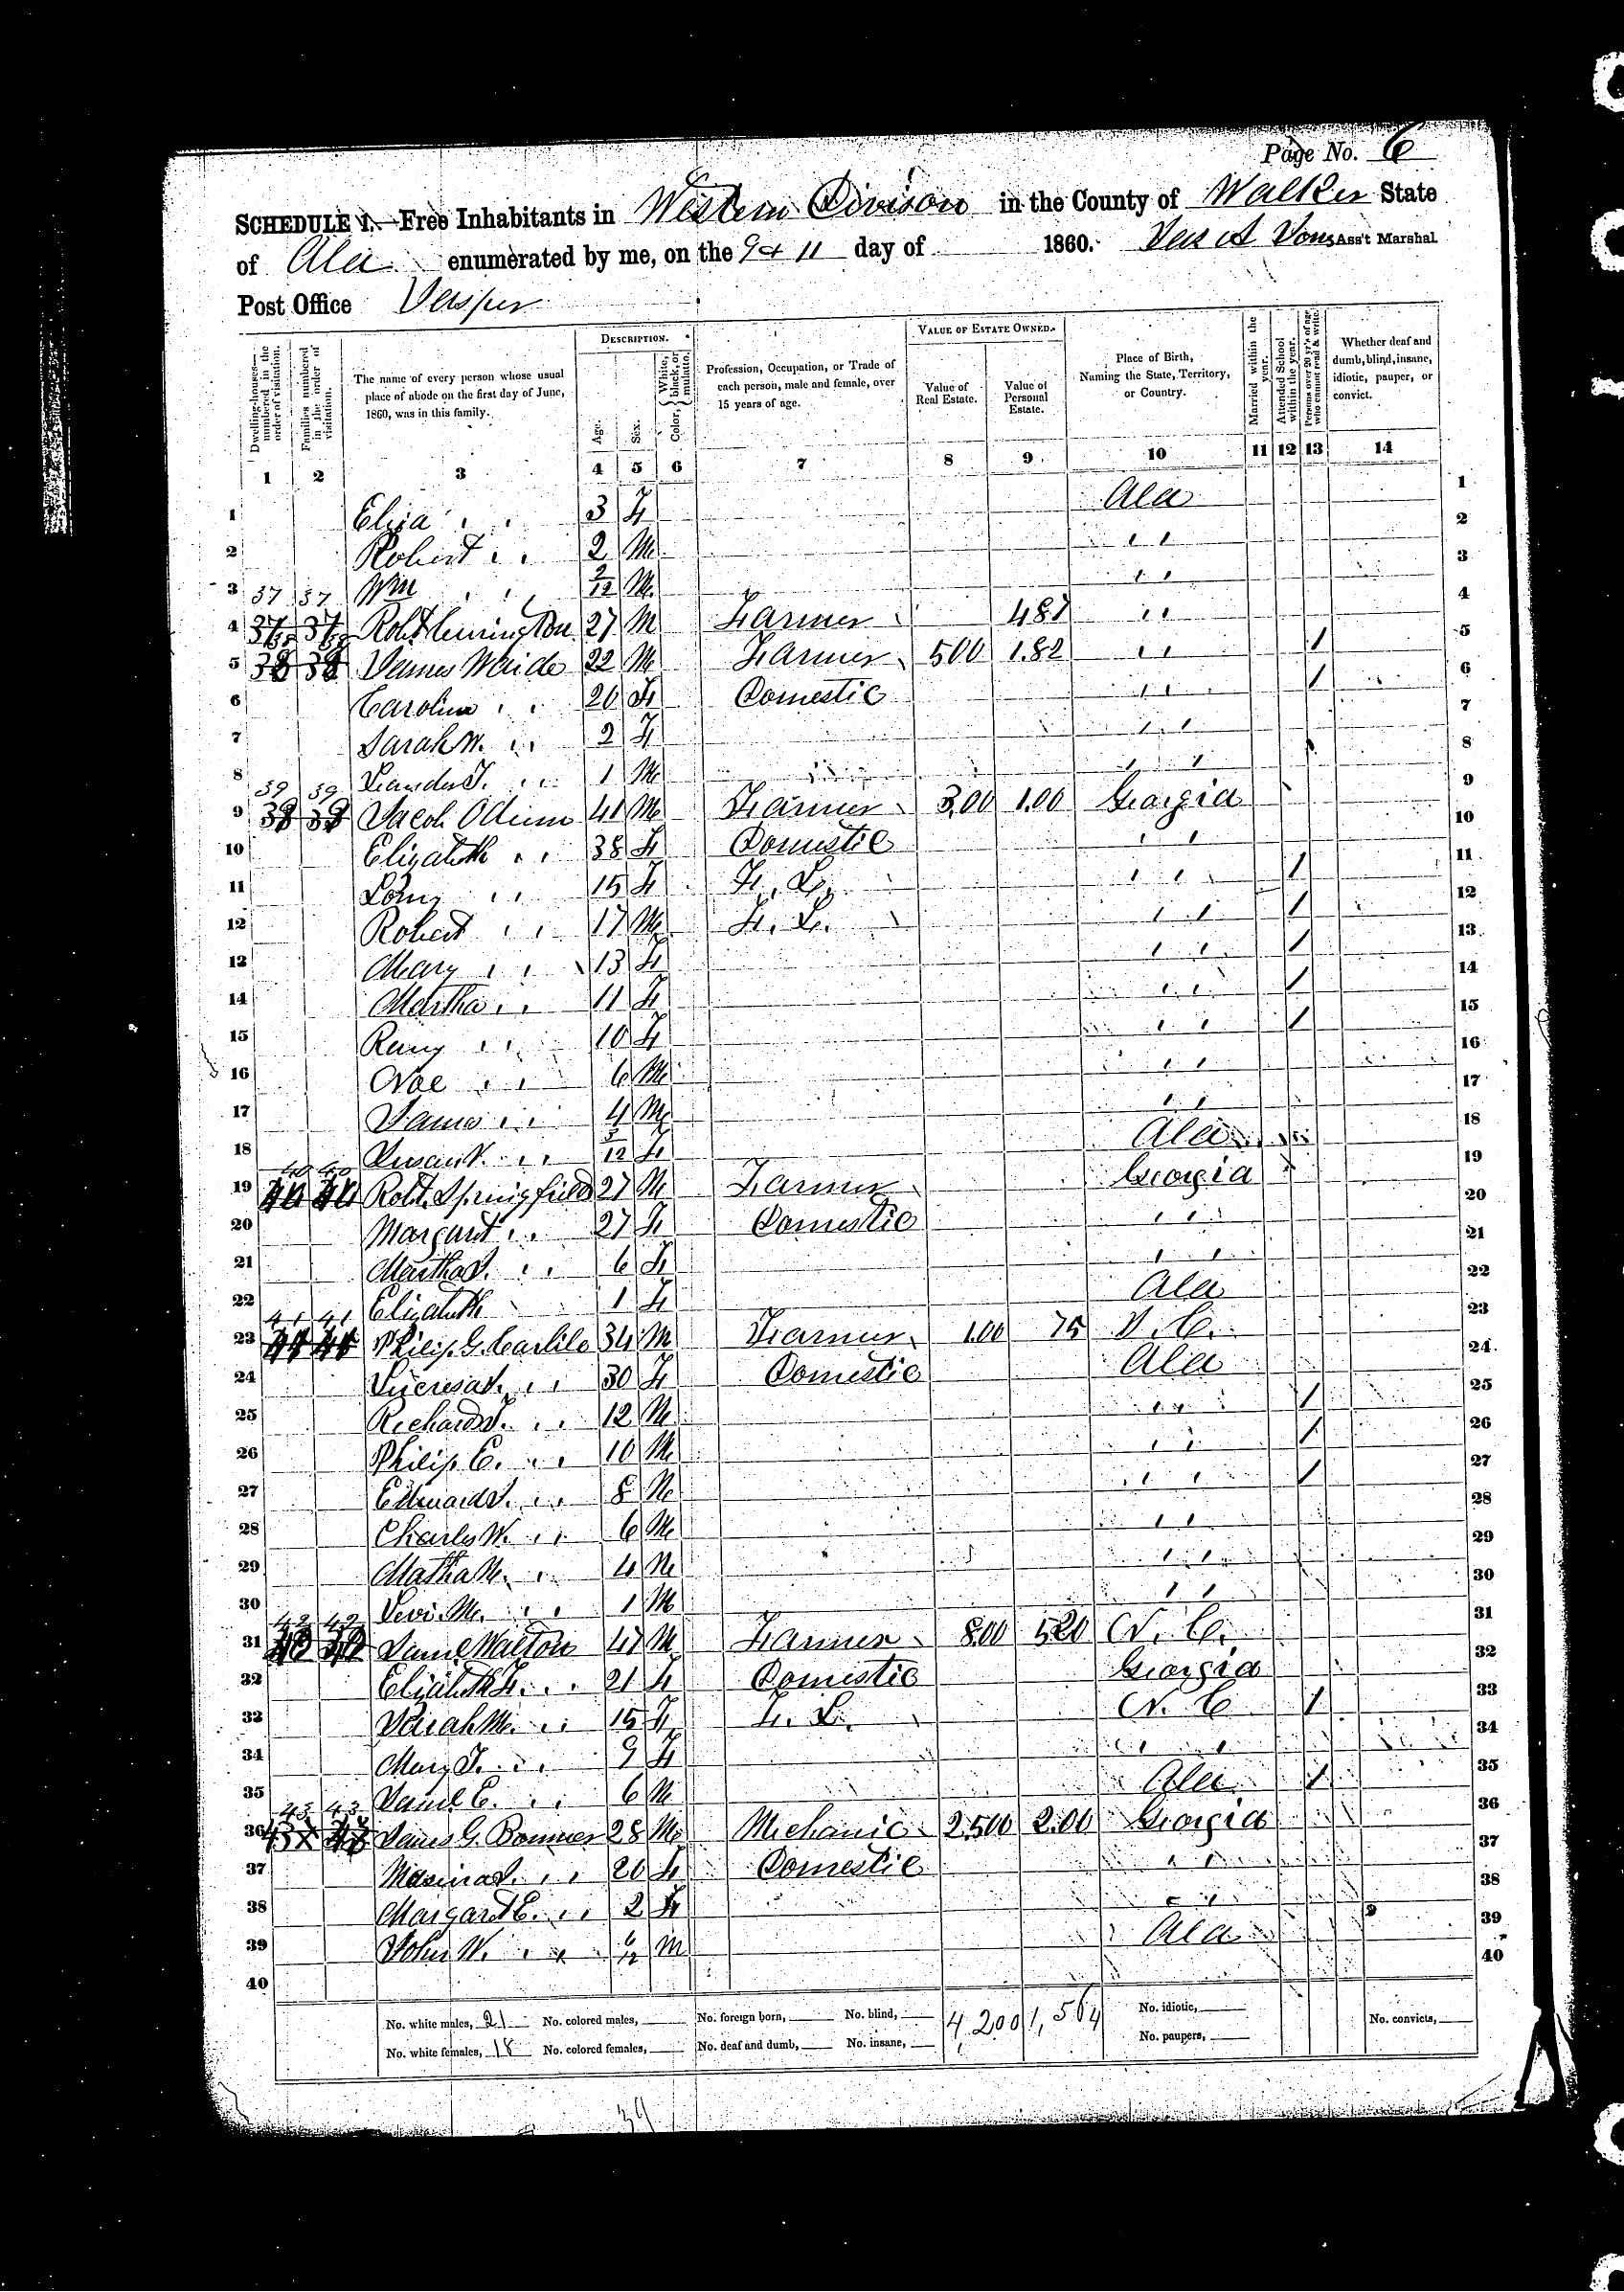 Page No. 6
SCHEDULE 1.—Free Inhabitants in Western Divison in the County of Walker State
of Ala enumerated by me, on the 9 & 11 day of 1860. Ass't Marshal
Post Office
DESCRIPTION. VALUE OF ESTATE OWNED.
Dwelling-houses—numbered in the order of visitation.
Families numbered in the order of visitation.
The name of every person whose usual place of abode on the first day of June, 1860, was in this family.
Age.
Sex.
Color, White, black, or mulatto.
Profession, Occupation, or Trade of each person, male and female, over 15 years of age.
Value of Real Estate.
Value of Personal Estate.
Place of Birth, Naming the State, Territory, or Country.
Married within the year.
Attended School within the year.
Persons over 20 y'rs of age who cannot read & write.
Whether deaf and dumb, blind, insane, idiotic, pauper, or convict.
1 2 3 4 5 6 7 8 9 10 11 12 13 14
1 Eliza " " 3 F Ala 1
2 Robert " " 2 M " " 2
3 Wm " " 2/12 M " " 3
4 37 37 Robt 27 M Farmer 481 " " 4
5 38 38 James 22 M Farmer 500 182 " " 1 5
6 Caroline " " 20 F Domestic " " 1 6
7 Sarah M. " " 2 F " " 7
8 " " 1 M " " 8
9 39 39 Jacob Odum 41 M Farmer 300 100 Georgia 9
10 Elizabeth " " 38 F Domestic " " 10
11 " " 15 F F. L. " " 1 11
12 Robert " " 17 M F. L. " " 1 12
13 Mary " " 13 F " " 1 13
14 Martha " " 11 F " " 1 14
15 " " 10 F " " 1 15
16 " " 6 M " " 16
17 James " " 4 M " " 17
18 " " 5/12 F Ala 18
19 40 40 Robt. Springfield 27 M Farmer Georgia 19
20 Margaret " " 27 F Domestic " " 20
21 Martha J. " " 6 F " " 21
22 Elizabeth " " 1 F Ala 22
23 41 41 Philip G. Carlile 34 M Farmer 100 75 N. C. 23
24 " " 30 F Domestic Ala 24
25 Richard J. " " 12 M " " 1 25
26 Philip C. " " 10 M " " 1 26
27 Edward J. " " 8 M " " 1 27
28 Charles W. " " 6 M " " 28
29 " " 4 M " " 29
30 Levi M. " " 1 M " " 30
31 42 42 Danil Walton 47 M Farmer 800 520 N. C. 31
32 Elizabeth F. " " 21 F Domestic Georgia 32
33 Sarah M. " " 15 F F. L. N. C. 1 33
34 Mary J. " " 9 F " " 34
35 Danil C. " " 6 M Ala 1 35
36 43 43 James G. Bonner 28 M Mechanic 2,500 200 Georgia 36
37 " " 20 F Domestic " " 37
38 Margaret E. " " 2 F " " 38
39 John W. " " 6/12 M Ala 39
40 40
No. white males, 21 No. colored males, No. foreign born, No. blind, 4,200 1,564 No. idiotic, No. convicts,
No. white females, 18 No. colored females, No. deaf and dumb, No. insane, No. paupers,